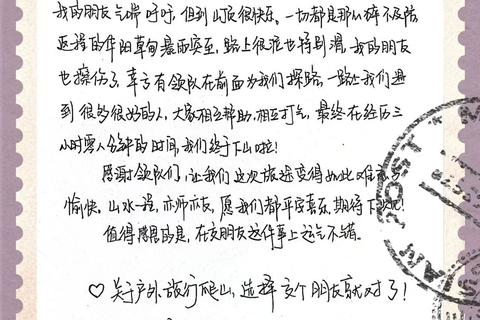 我的朋友气喘吁吁,但到山顶很快乐。一切都是那么猝不及防
返程的华阳草甸暴雨突至,路上很泥也特别滑,我的朋友
也擦伤了,幸亏有领队在前面为我们探路,一路上我们遇
到很多很好的人,大家相互帮助,相互打气,最终在经历三
小时零八分钟的时间,我们终于下山啦!
感谢领队们,让我们这次旅途变得如此难忘
愉快。山水一程,亦师亦友,愿我们都平安喜乐,期待下次见!
值得感恩的是,在交朋友这件事上运气不错。
♡ 关于户外旅行爬山,选择交个朋友就对了!
POST